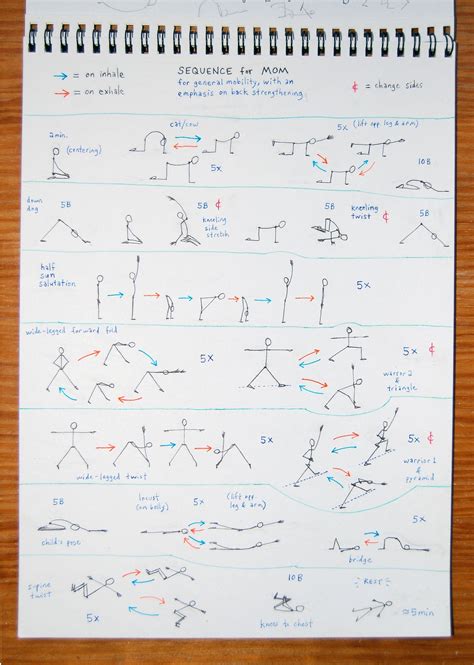 SEQUENCE for MOM
for general mobility, with an
emphasis on back strengthening
→ = on inhale
→ = on exhale
¢ = change sides
2min.
(centering)
cat/cow
5x
5x (lift opp. leg & arm)
10B
down
dog
5B
5B ¢
kneeling
side
stretch
5B
kneeling
twist ¢
5B
half
sun
salutation
5x
wide-legged forward fold
5x
5x ¢
warrior 2
&
triangle
wide-legged twist
5x
5x ¢
warrior 1
&
pyramid
5B
child's pose
locust
(on belly)
5x
(lift opp.
leg & arm)
5x
bridge
spine
twist
5x
10B
knees to chest
REST
≈5min